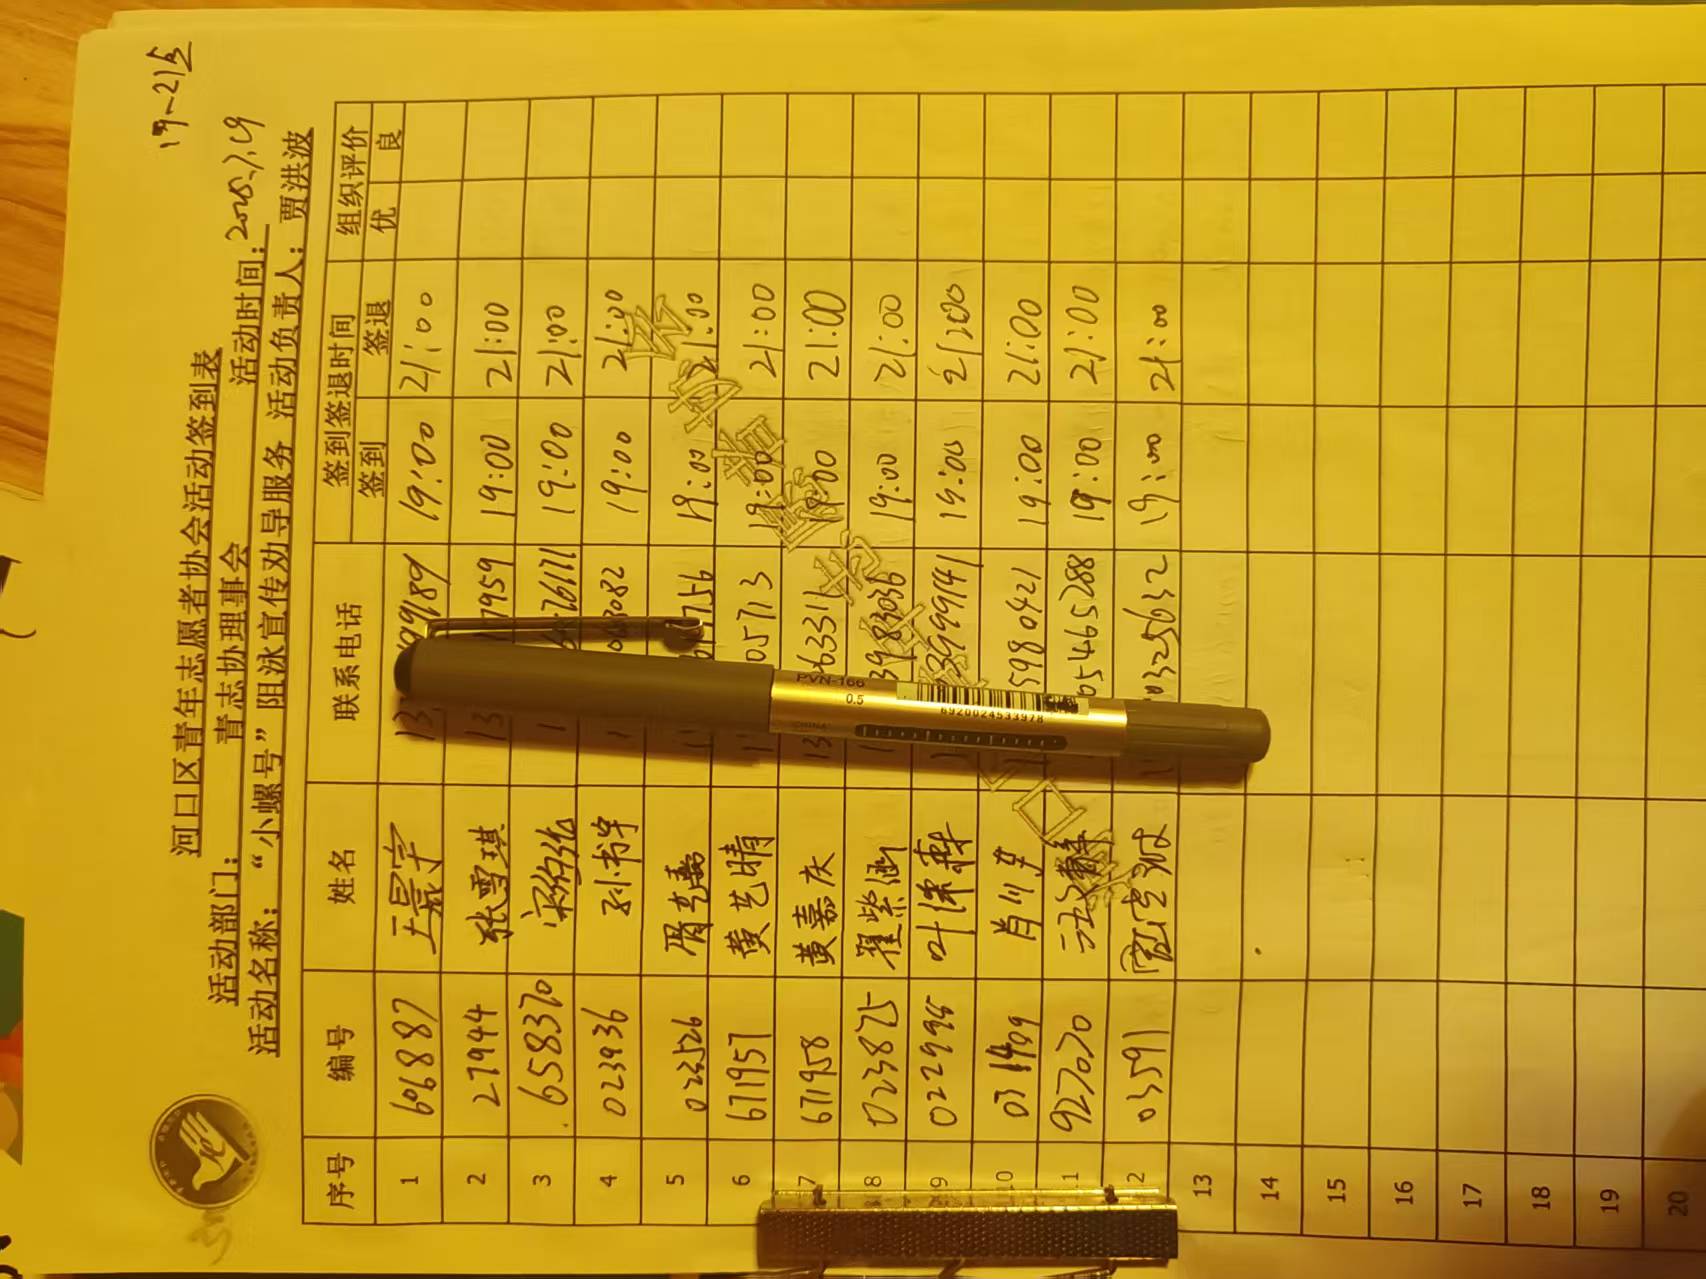 19-21点
河口区青年志愿者协会活动签到表
活动部门： 青志协理事会 活动时间：2025.7.19
活动名称：“小螺号”阻泳宣传劝导服务 活动负责人：贾洪波
序号 编号 姓名 联系电话 签到签退时间 组织评价
签到 签退 优 良
1 606887 13 99189 19:00 21:00
2 27944 张雪琪 13 7959 19:00 21:00
3 658370 76171 19:00 21:00
4 023936 孙书宇 3082 19:00 21:00
5 023526 756 19:00 21:00
6 671957 黄艺晴 05713 19:00 21:00
7 671958 黄嘉庆 13 63311 19:00 21:00
8 023875 翟紫涵 3983036 19:00 21:00
9 022998 叶 39999141 19:00 21:00
10 03 1499 肖川 5980421 19:00 21:00
11 927070 05465288 19:00 21:00
12 03591 0325632 19:00 21:00
13
14
15
16
17
18
19
20
PVN-166
0.5
CHINA
6920024533978